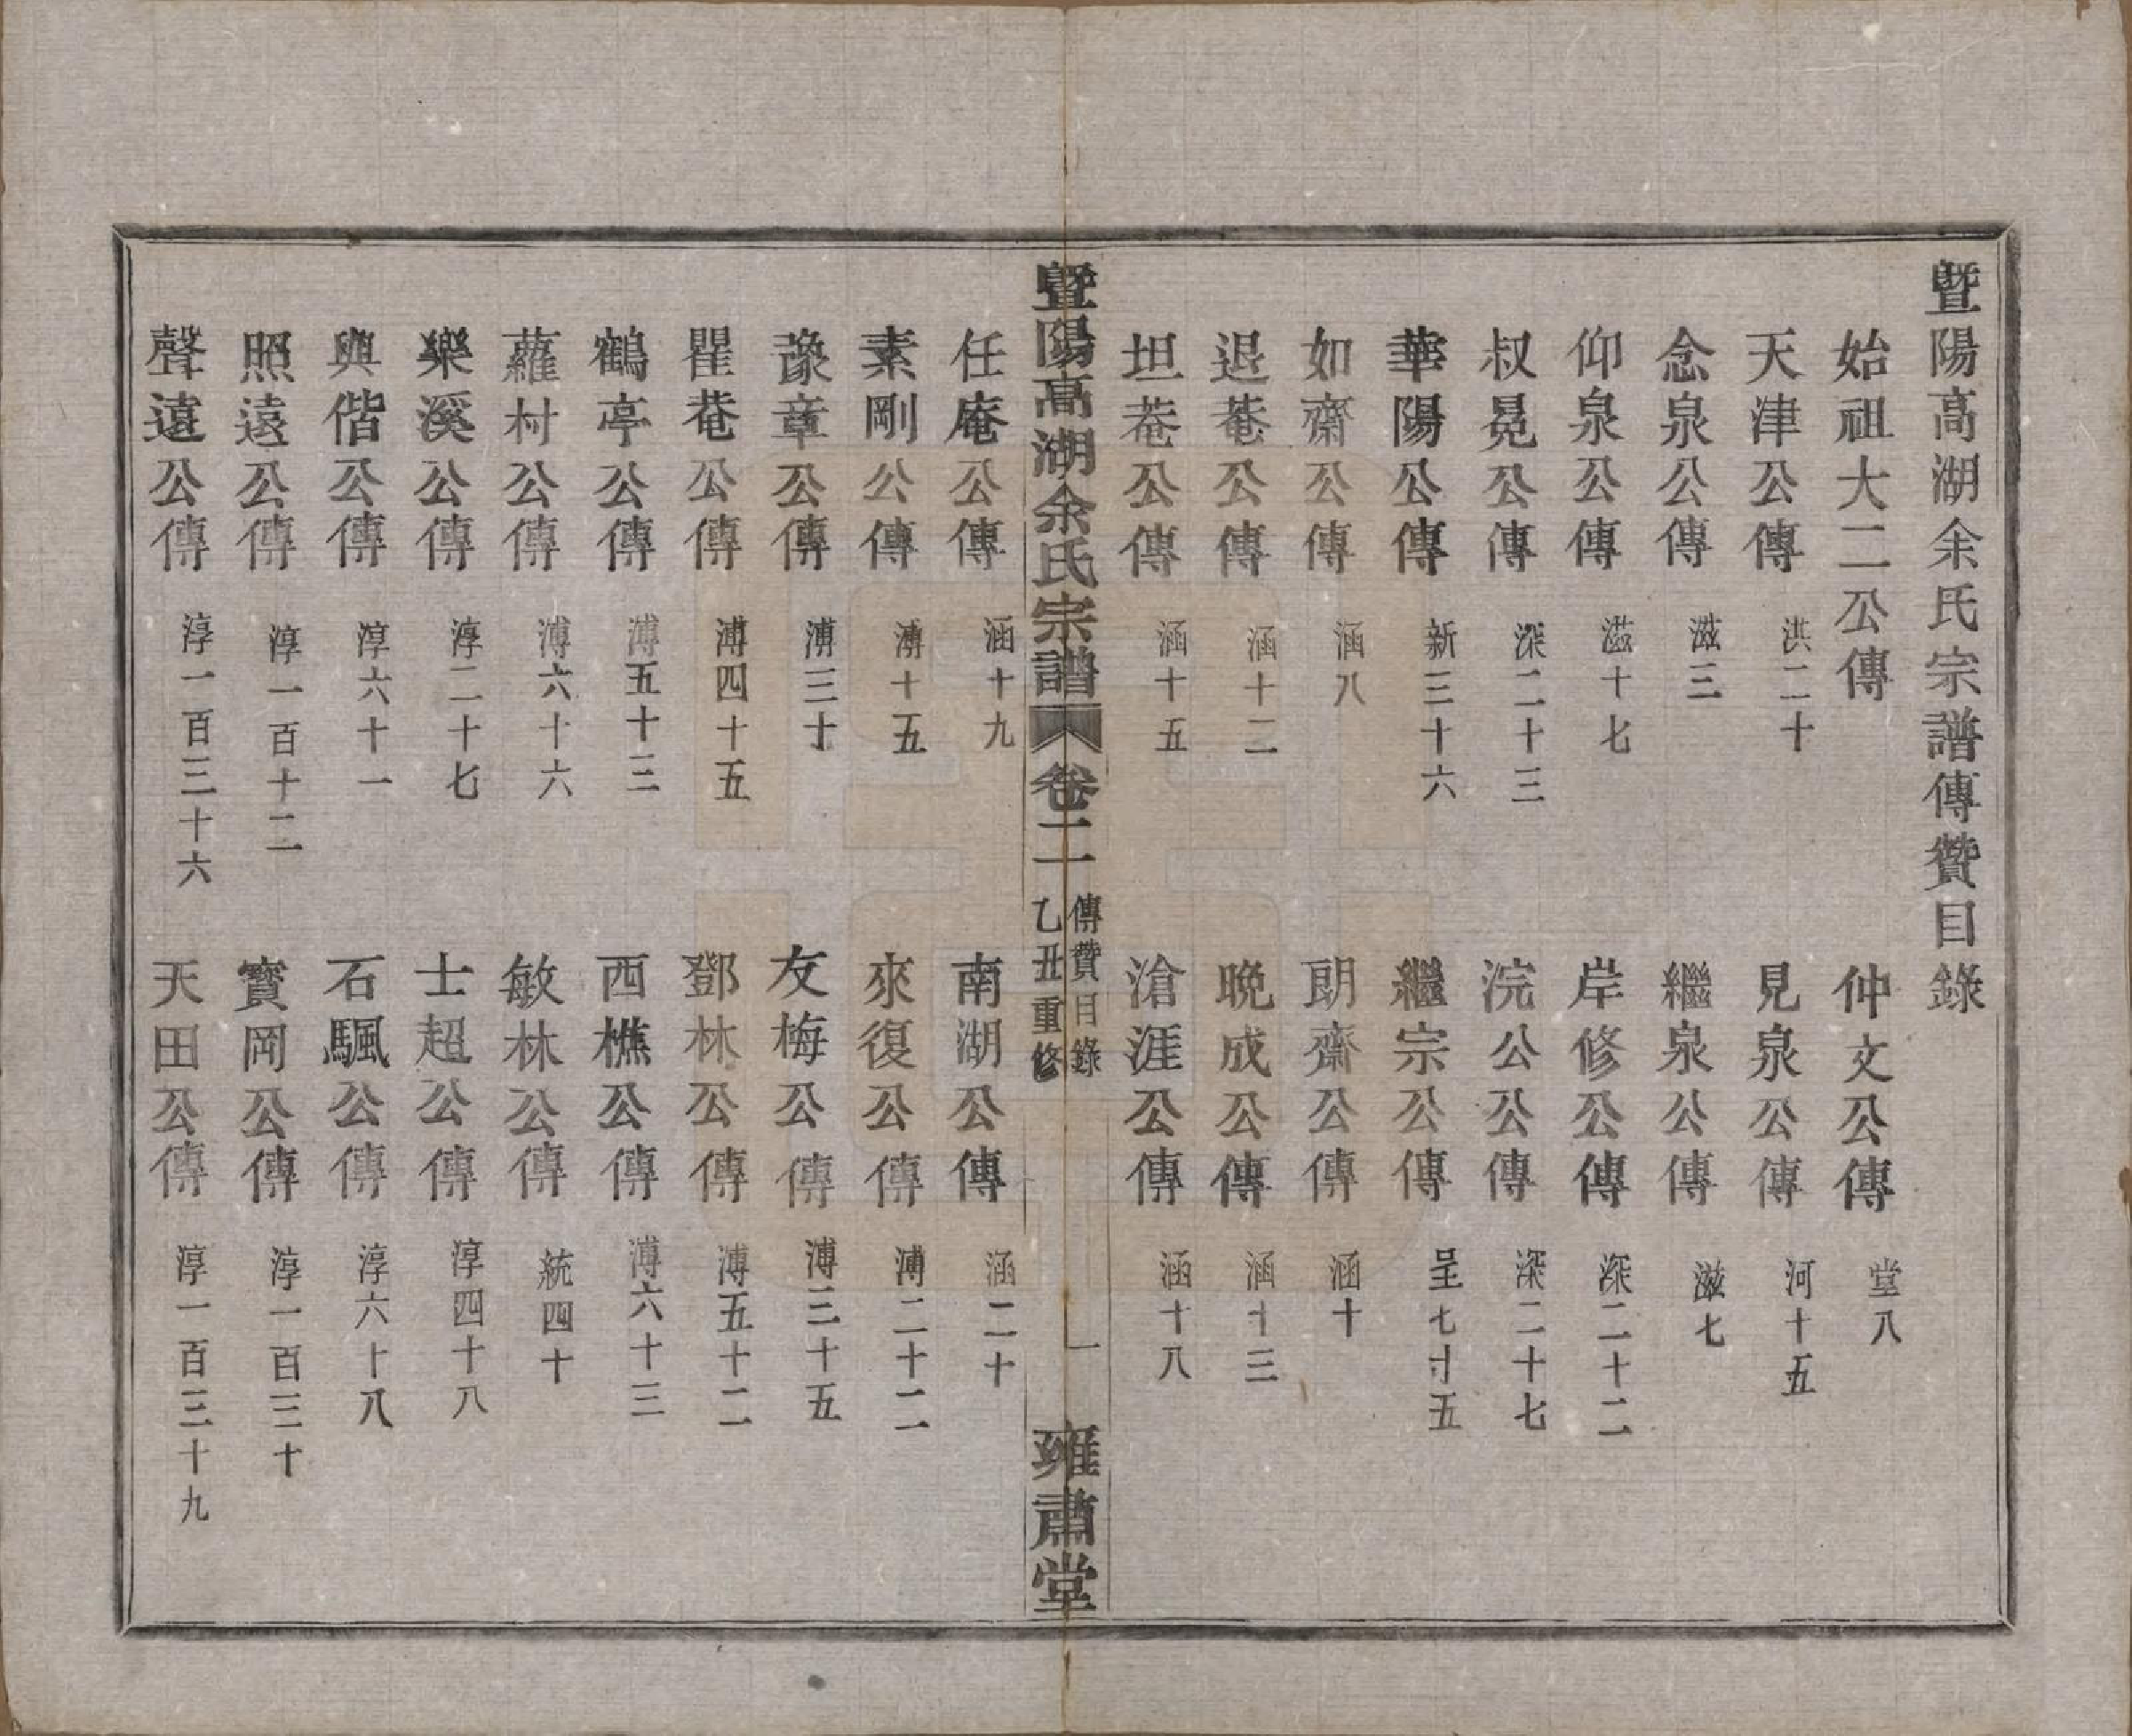 暨陽高湖余氏宗譜傳贊目錄
始祖大二公傳
仲文公傳 堂八
天津公傳 洪二十
見泉公傳 河十五
念泉公傳 滋三
繼泉公傳 滋七
仰泉公傳 滋十七
岸修公傳 深二十二
叔晃公傳 深二十三
浣公公傳 深二十七
華陽公傳 新三十六
繼宗公傳 呈七十五
如齋公傳 涵八
朗齋公傳 涵十
退菴公傳 涵十二
晚成公傳 涵十三
坦菴公傳 涵十五
滄涯公傳 涵十八
暨陽高湖余氏宗譜 卷二 傳贊目錄 乙丑重修 一 雍肅堂
任庵公傳 涵十九
南湖公傳 涵二十
素剛公傳 溥十五
來復公傳 溥二十二
豫章公傳 溥三十
友梅公傳 溥三十五
瞿菴公傳 溥四十五
鄧林公傳 溥五十二
鶴亭公傳 溥五十三
西樵公傳 溥六十三
蘿村公傳 溥六十六
敏林公傳 統四十
樂溪公傳 淳二十七
士超公傳 淳四十八
與偕公傳 淳六十一
石颿公傳 淳六十八
照遠公傳 淳一百十二
寶岡公傳 淳一百三十
聲遠公傳 淳一百三十六
天田公傳 淳一百三十九